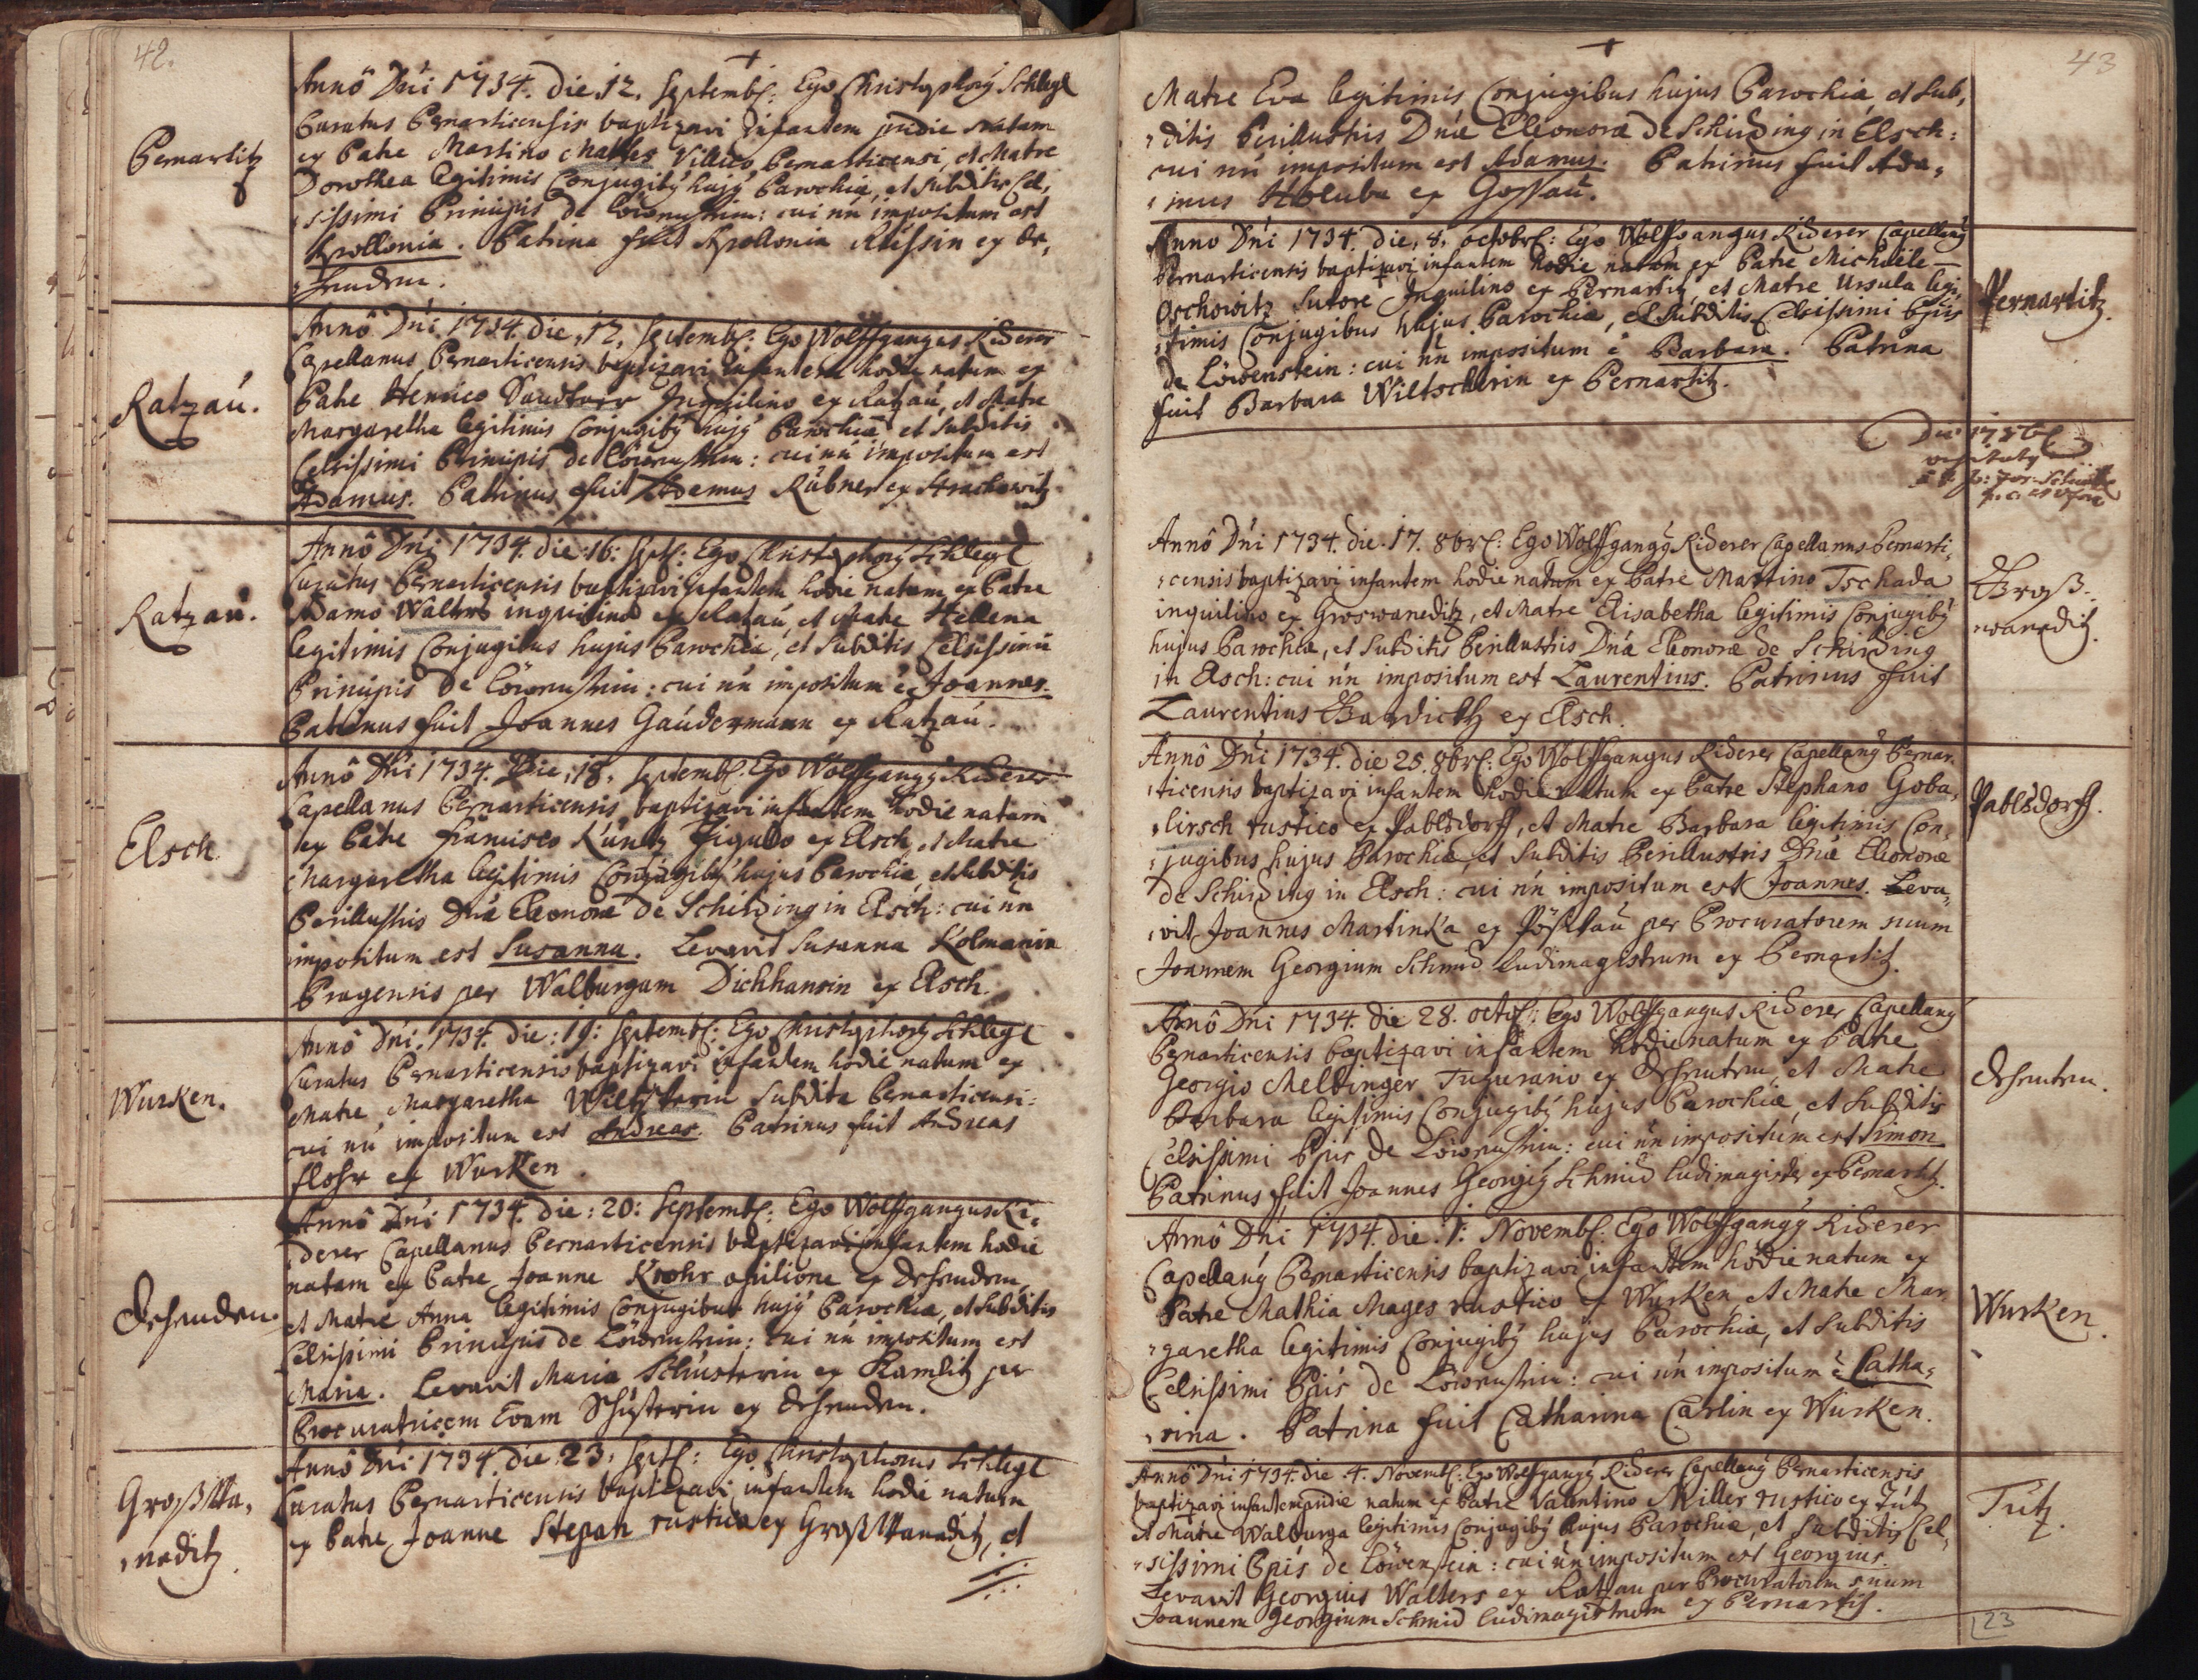 42.
Pernartitz
Annô Dñi 1734. die 12. Septemb: Ego Christophorꝰ Schlegl
Curatus Pernarticensis baptizavi infantem pridie natam
ex Patre Martino Mathes Villico Pernarticensi, et Matre
Dorothea legitimis Conjugibꝰ hujꝰ Parochiæ, et subditis Cel,
,sissimi Principis de Löwenstein: cui nñ impositum est
Apollonia. Patrina fuit Apollonia Russin ex
Ratzau.
Annô Dñi 1734. die, 12, Septemb: Ego Wolffgangus Riderer
Capellanus Pernarticensis baptizavi infantem hodie natum ex
Patre Henrico Inquilino ex Ratzau, et Matre
Margaretha legitimis Conjugibꝰ hujꝰ Parochiæ et subditis
Celsissimi Principis de Löwenstein: cui nñ impositum est
Adamus. Patrinus fuit Adamus Rübner ex Strachowitz
Ratzau.
Annô Dñi 1734. die: 16: Sept: Ego Christophorꝰ Schlegl
Curatus Pernarticensis baptizavi infantem hodie natum ex Patre
Adamo Walters inquilino ex Ratzau, et Matre Hellena
legitimis Conjugibus hujus Parochiæ, et subditis Celsissimi
Principis de Löwenstein: cui nñ impositum ē Joannes.
Patrinus fuit Joannes Gaudermann ex Ratzau.
Elsch
Annô Dñi 1734. Die, 18, Septemb: Ego Wolffgangꝰ Riderer
Capellanus Pernarticensis baptizavi infantem hodie natam
ex Patre Francisco Kuncz Figulo ex Elsch, et Matre
Margaretha legitimis Conjugibꝰ hujus Parochiæ, et subditis
Perillustris Dñæ Eleonoræ de Schirding in Elsch: cui nñ
impositum est Susanna. Levavit Susanna Kolmanin
Pragensis per Walburgam Dichhansin ex Elsch.
Wurken.
Annô Dñi 1734. die: 19: Septemb: Ego Christophorꝰ Schlegl
Curatus Pernarticensis baptizavi infantem hodie natum ex
Matre Margaretha subdita Pernarticensi:
cui nñ impositum est Andreas. Patrinus fuit Andreas
Flohr ex Wurken.
Annô Dñi 1734. die: 20: Septemb: Ego Wolffgangus Ri,
derer Capellanus Pernarticensis baptizavi infantem hodie
natam ex Patre Joanne Krohr opilione ex
et Matre Anna legitimis Conjugibus hujꝰ Parochiæ, et subditis
Celsissimi Principis de Löwenstein: cui nñ impositum est
Maria. Levavit Maria Schusterin ex Ramlitz per
Procuratricem Evam Schusterin ex
GroßWa,
,neditz.
Annô Dñi 1734. die: 23, Sept: Ego Christophorus Schlegl
Curatus Pernarticensis baptizavi infantem hodie natum
ex Patre Joanne Stepan rustico ex GroßWaneditz, et
43
Matre Eva legitimis Conjugibus hujus Parochiæ, et sub,
,ditis Perillustris Dñæ Eleonoræ de Schirding in Elsch:
cui nñ impositum est Adamus. Patrinus fuit Ada,
,mus Holuba ex Gossau.
Pernartitz.
Anno Dñi 1734. die, 8, octobr: Ego Wolffgangus Riderer Capellanꝰ
Pernarticensis baptizavi infantem hodie natam ex Patre Michaele
Oschowitz Sutore Inquilino ex Pernartitz, et Matre Ursula legi,
,timis Conjugibus hujus Parochiæ, et subditis Celsissimi Ppis
de Löwenstein: cui nñ impositum ē Barbara. Patrina
fuit Barbara Wiltscherin ex Pernartitz.
Die 17 8b
Groß-
waneditz.
Annô Dñi 1734. die. 17. 8br: Ego Wolffgangꝰ Riderer Capellanus Pernarti,
,censis baptizavi infantem hodie natum ex Patre Martino Tschada
inquilino ex Groswaneditz, et Matre Elisabetha legitimis Conjugibꝰ
hujus Parochiæ, et subditis Perillustris Dñæ Eleonoræ de Schirding
in Elsch: cui nñ impositum est Laurentius. Patrinus fuit
Laurentius ex Elsch.
Pablsdorff.
Annô Dñi 1734. die 25. 8br: Ego Wolffgangus Riderer Capellanꝰ Pernar,
,ticensis baptizavi infantem hodie natum ex Patre Stephano Goba,
,lirsch rustico ex Pablsdorff, et Matre Barbara legitimis Con,
,jugibus hujus Parochiæ, et subditis Perillustris Dñæ Eleonoræ
de Schirding in Elsch: cui nñ impositum est Joannes. Leva,
,vit Joannes Martinka ex per Procuratorem suum
Joannem Georgium Schmid ludimagistrum ex Pernartitz.
Annô Dñi 1734. die 28. octob: Ego Wolffgangus Riderer Capellanꝰ
Pernarticensis baptizavi infantem hodie natum ex Patre
Georgio Meltinger Tugurario ex et Matre
Barbara legitimis Conjugibꝰ hujus Parochiæ, et subditis
Celsissimi Ppis de Löwenstein: cui nñ impositum est Simon
Patrinus fuit Joannes Georgiꝰ Schmid ludimagister ex Pernartitz.
Wurken.
Annô Dñi 1734. die. 1: Novemb: Ego Wolffgangꝰ Riderer
Capellanꝰ Pernarticensis baptizavi infantem hodie natam ex
Patre Mathia Mages rustico ex Wurken et Matre Mar,
,garetha legitimis Conjugibꝰ hujus Parochiæ, et subditis
Celsissimi Ppis de Löwenstein: cui nñ impositum ē Catha,
,rina. Patrina fuit Catharina Carlin ex Wurken.
Tutz.
Annô Dñi 1734. die. 4. Novemb: Ego Wolffgangꝰ Riderer Capellanꝰ Pernarticensis
baptizavi infantem pridie natum ex Patre Valentino Miller rustico ex Tutz
et Matre Walburga legitimis Conjugibꝰ hujus Parochiæ, et subditis Cel,
,sissimi Ppis de Löwenstein: cui nñ impositum est Georgius.
Levavit Georgius Walters ex Ratzau per Procuratorem suum
Joannem Georgium Schmid ludimagistrum ex Pernartitz.
23